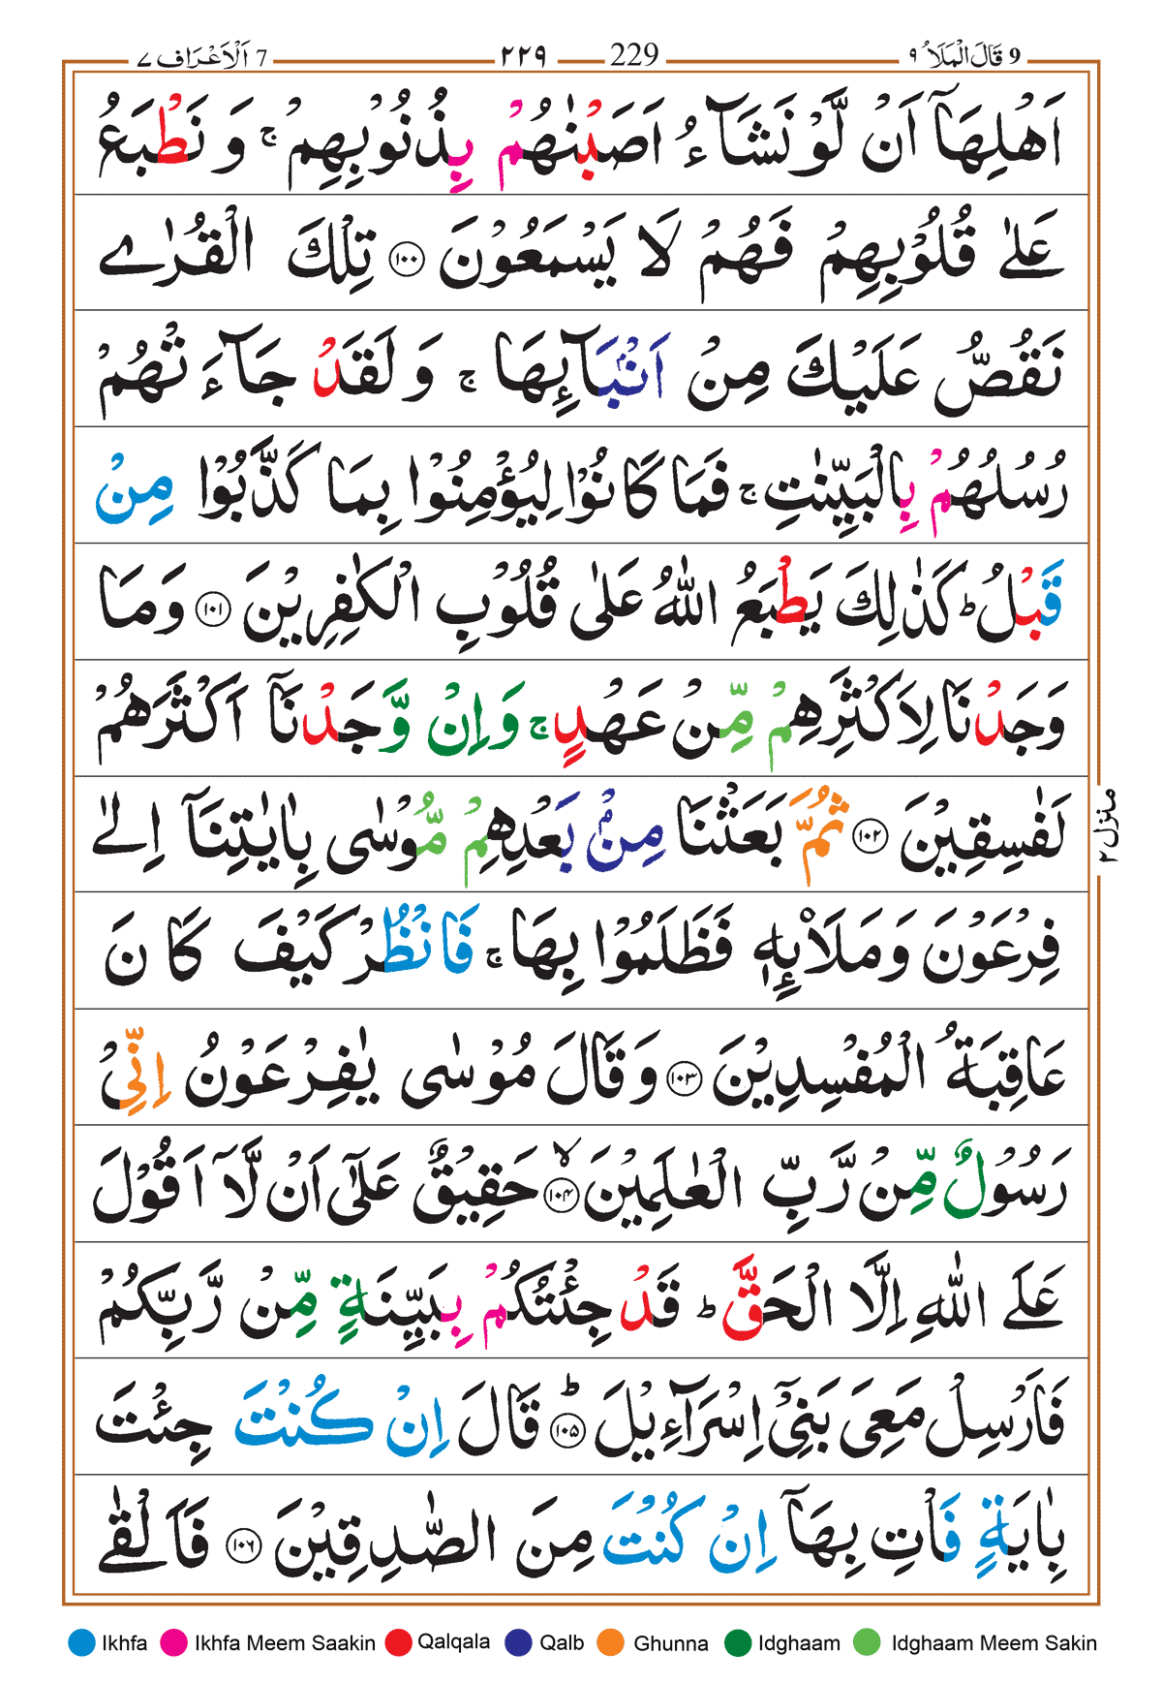 9 قَالَ الْمَلَاُ ٩ 229 ٢٢٩ 7 اَلْاَعْرَاف ٧
اَهْلِهَاۤ اَنْ لَّوْ نَشَآءُ اَصَبْنٰهُمْ بِذُنُوْبِهِمْ ۚ وَ نَطْبَعُ
عَلٰى قُلُوْبِهِمْ فَهُمْ لَا يَسْمَعُوْنَ ۝١٠٠ تِلْكَ الْقُرٰى
نَقُصُّ عَلَيْكَ مِنْ اَنْۢبَآئِهَا ۚ وَ لَقَدْ جَآءَتْهُمْ
رُسُلُهُمْ بِالْبَيِّنٰتِ ۚ فَمَا كَانُوْا لِيُؤْمِنُوْا بِمَا كَذَّبُوْا مِنْ
قَبْلُ ؕ كَذٰلِكَ يَطْبَعُ اللّٰهُ عَلٰى قُلُوْبِ الْكٰفِرِيْنَ ۝١٠١ وَمَا
وَجَدْنَا لِاَكْثَرِهِمْ مِّنْ عَهْدٍ ۚ وَاِنْ وَّجَدْنَاۤ اَكْثَرَهُمْ
لَفٰسِقِيْنَ ۝١٠٢ ثُمَّ بَعَثْنَا مِنْۢ بَعْدِهِمْ مُّوْسٰى بِاٰيٰتِنَاۤ اِلٰى
فِرْعَوْنَ وَمَلَا۠ئِهٖ فَظَلَمُوْا بِهَا ۚ فَانْظُرْ كَيْفَ كَانَ
عَاقِبَةُ الْمُفْسِدِيْنَ ۝١٠٣ وَقَالَ مُوْسٰى يٰفِرْعَوْنُ اِنِّىْ
رَسُوْلٌ مِّنْ رَّبِّ الْعٰلَمِيْنَ ۙ۝١٠٤ حَقِيْقٌ عَلٰٓى اَنْ لَّاۤ اَقُوْلَ
عَلَى اللّٰهِ اِلَّا الْحَقَّ ؕ قَدْ جِئْتُكُمْ بِبَيِّنَةٍ مِّنْ رَّبِّكُمْ
فَاَرْسِلْ مَعِىَ بَنِىْۤ اِسْرَآءِيْلَ ؕ۝١٠٥ قَالَ اِنْ كُنْتَ جِئْتَ
بِاٰيَةٍ فَاْتِ بِهَاۤ اِنْ كُنْتَ مِنَ الصّٰدِقِيْنَ ۝١٠٦ فَاَلْقٰى
منزل ٢
Ikhfa Ikhfa Meem Saakin Qalqala Qalb Ghunna Idghaam Idghaam Meem Sakin